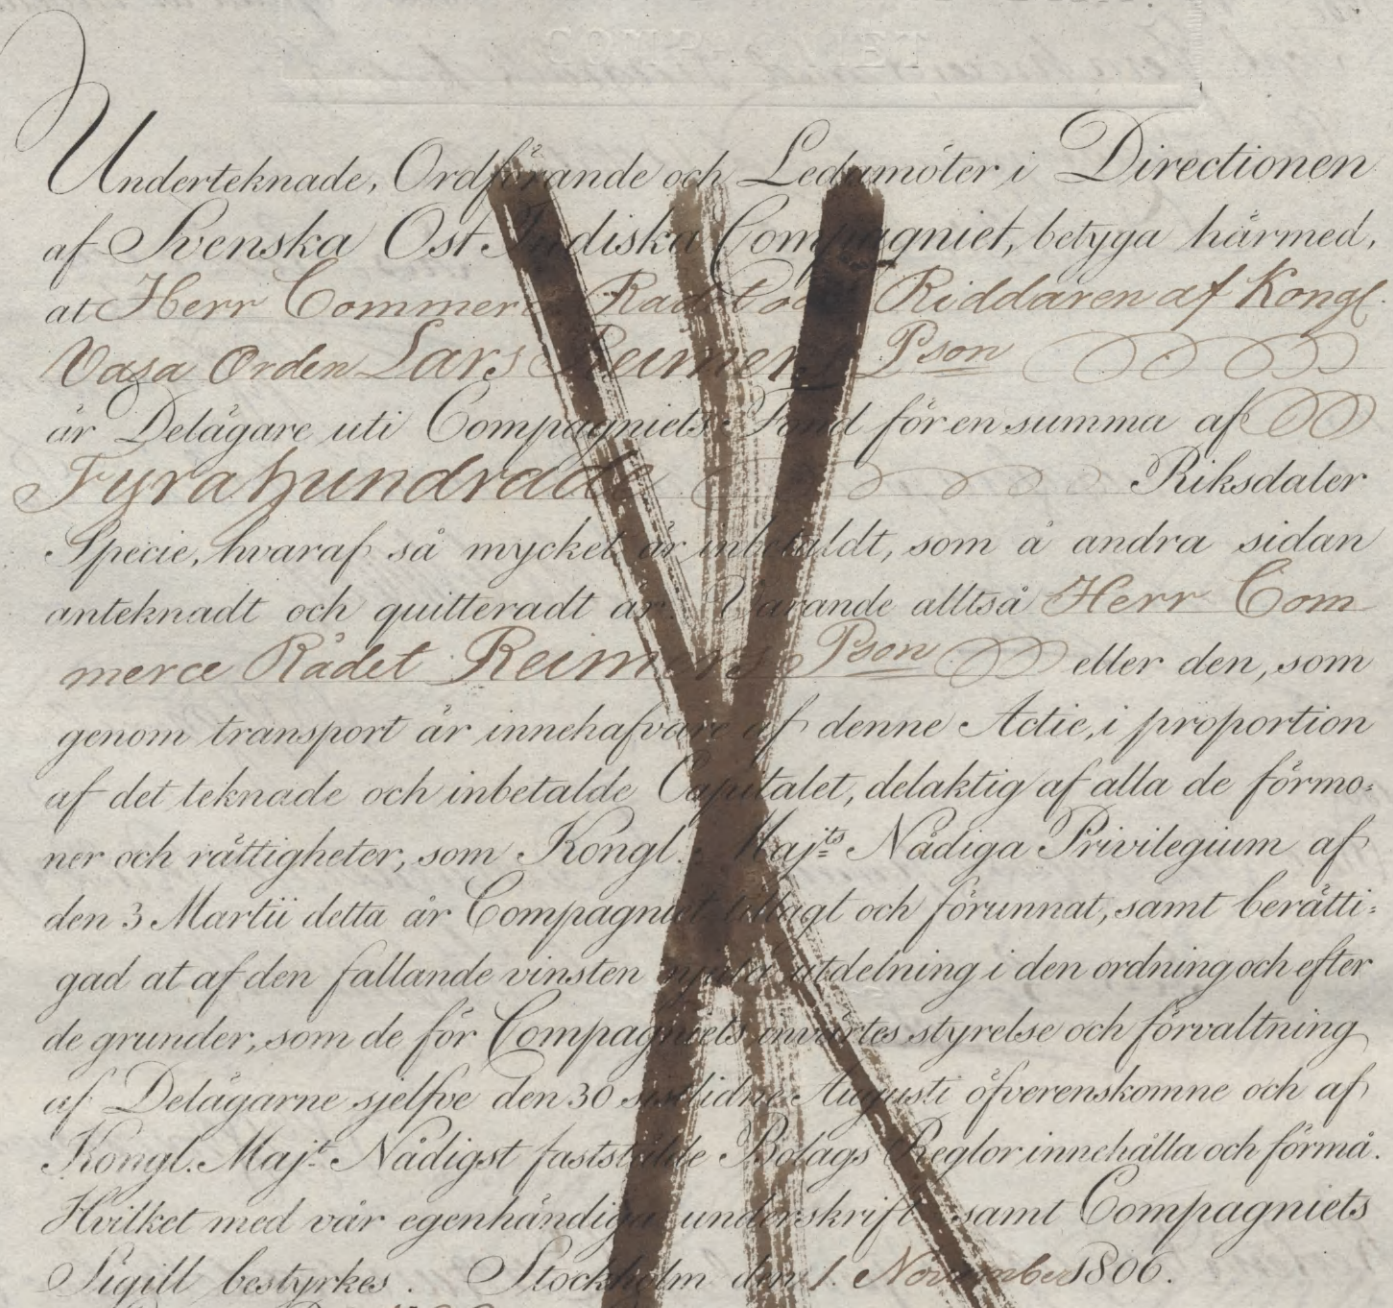 COMPAGNIET
Underteknade, Ordförande och Ledamöter i Directionen
af Svenska Ost Indiska Compagniet, betyga härmed,
at Herr Commerce Rådet och Riddaren af Kongl.
Vasa Orden Lars Reimers Pson
är Delägare uti Compagniets Fond för en summa af
Fyrahundrade Riksdaler
Specie, hvaraf så mycket är inbetaldt, som å andra sidan
anteknadt och quitteradt är. Varande alltså Herr Com
merce Rådet Reimers Pson eller den, som
genom transport är innehafvare af denne Actie, i proportion
af det teknade och inbetalde Capitalet, delaktig af alla de förmo=
ner och rättigheter, som Kongl. Maj:ts Nådiga Privilegium af
den 3 Martii detta år Compagniet tillagt och förunnat, samt berätti=
gad at af den fallande vinsten njuta utdelning i den ordning och efter
de grunder, som de för Compagniets invärtes styrelse och förvaltning
af Delägarne sjelfve den 30 sistlidne Augusti öfverenskomne och af
Kongl. Maj:t Nådigst fastställde Bolags Reglor innehålla och förmå.
Hvilket med vår egenhändiga underskrift samt Compagniets
Sigill bestyrkes. Stockholm den 1 November 1806.